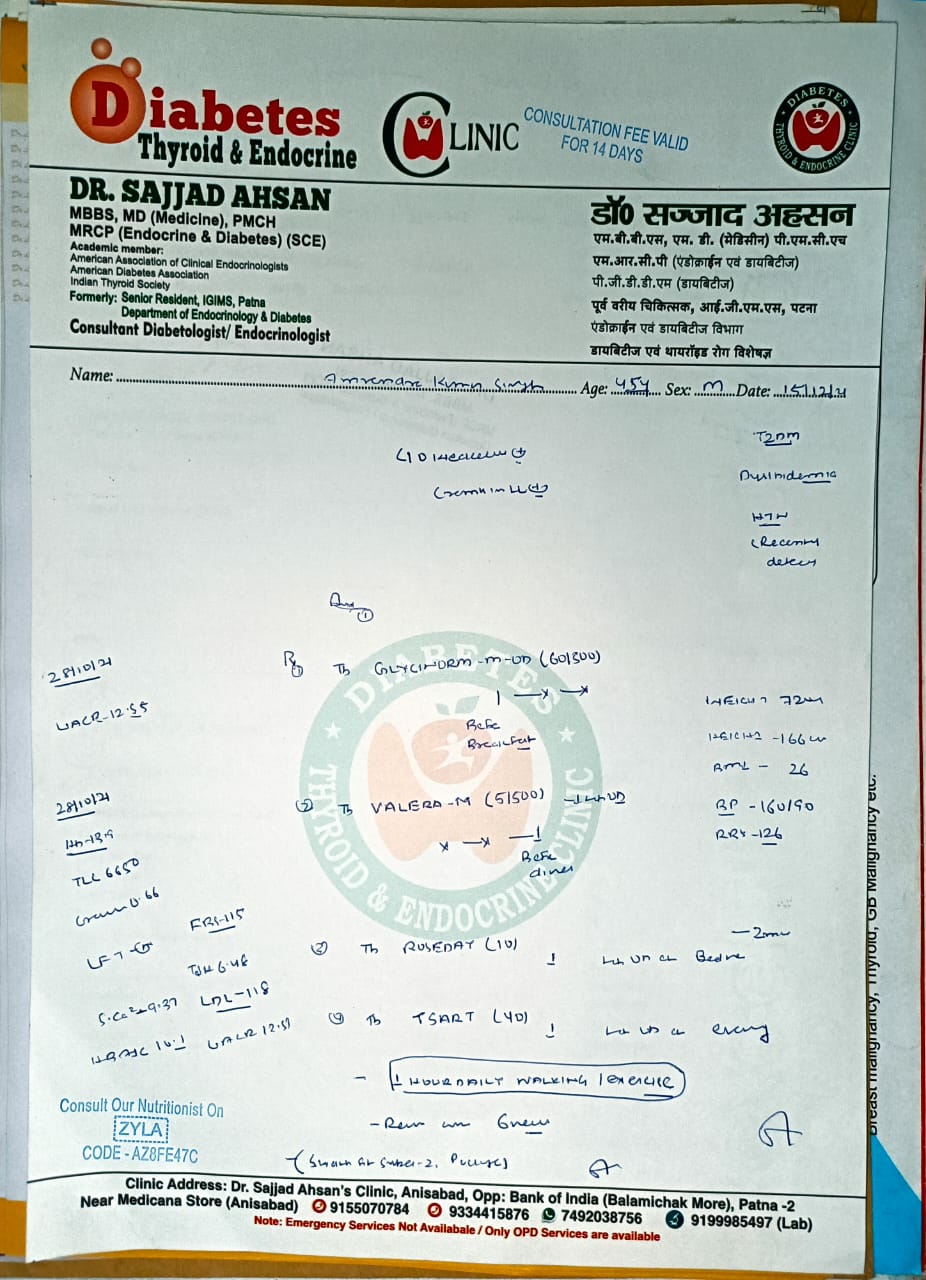 Diabetes
Thyroid & Endocrine
CLINIC
CONSULTATION FEE VALID
FOR 14 DAYS
DIABETES
THYROID & ENDOCRINE CLINIC
DR. SAJJAD AHSAN
MBBS, MD (Medicine), PMCH
MRCP (Endocrine & Diabetes) (SCE)
Academic member:
American Association of Clinical Endocrinologists
American Diabetes Association
Indian Thyroid Society
Formerly: Senior Resident, IGIMS, Patna
Department of Endocrinology & Diabetes
Consultant Diabetologist/ Endocrinologist
डॉ० सज्जाद अहसन
एम.बी.बी.एस, एम. डी. (मेडिसीन) पी.एम.सी.एच
एम.आर.सी.पी (एंडोक्राईन एवं डायबिटीज)
पी.जी.डी.डी.एम (डायबिटीज)
पूर्व वरीय चिकित्सक, आई.जी.एम.एस, पटना
एंडोक्राईन एवं डायबिटीज विभाग
डायबिटीज एवं थायरॉइड रोग विशेषज्ञ
Name: Singh Age: 45y Sex: M Date:
T2DM
HTN
28/10/21
UACR-12.55
Rx
① Tb GLYCINORM-M-OD (60/500)
1 —x —x
Before
Breakfast
72
-166 cm
BMI - 26
BP -160/90
RBS -126
28/10/21
Hb-13.9
TLC 6650
0.66
LFT-
FBS-115
TSH 6.48
S.Ca²⁺ 9.37
LDL-118
HBA1C 10.1
UACR 12.51
② Tb VALERA-M (5/500)
x —x —1
Before
dinner
③ Tb ROSEDAY (10)
④ Tb TSART (40)
- 1 HOUR DAILY WALKING / EXERCISE
DIABETES
THYROID & ENDOCRINE CLINIC
Consult Our Nutritionist On
ZYLA
CODE - AZ8FE47C
Clinic Address: Dr. Sajjad Ahsan's Clinic, Anisabad, Opp: Bank of India (Balamichak More), Patna -2
Near Medicana Store (Anisabad) 9155070784 9334415876 7492038756 9199985497 (Lab)
Note: Emergency Services Not Availabale / Only OPD Services are available
Breast malignancy, Thyroid, GB Malignancy etc.